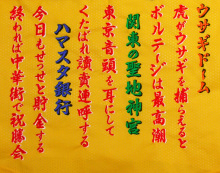 ウサギドーム
虎がウサギを捕らえると
ボルテージは最高潮
関東の聖地神宮
東京音頭を耳にして
くたばれ讀賣連呼する
ハマスタ銀行
今日もせっせと貯金する
終われば中華街で祝勝会